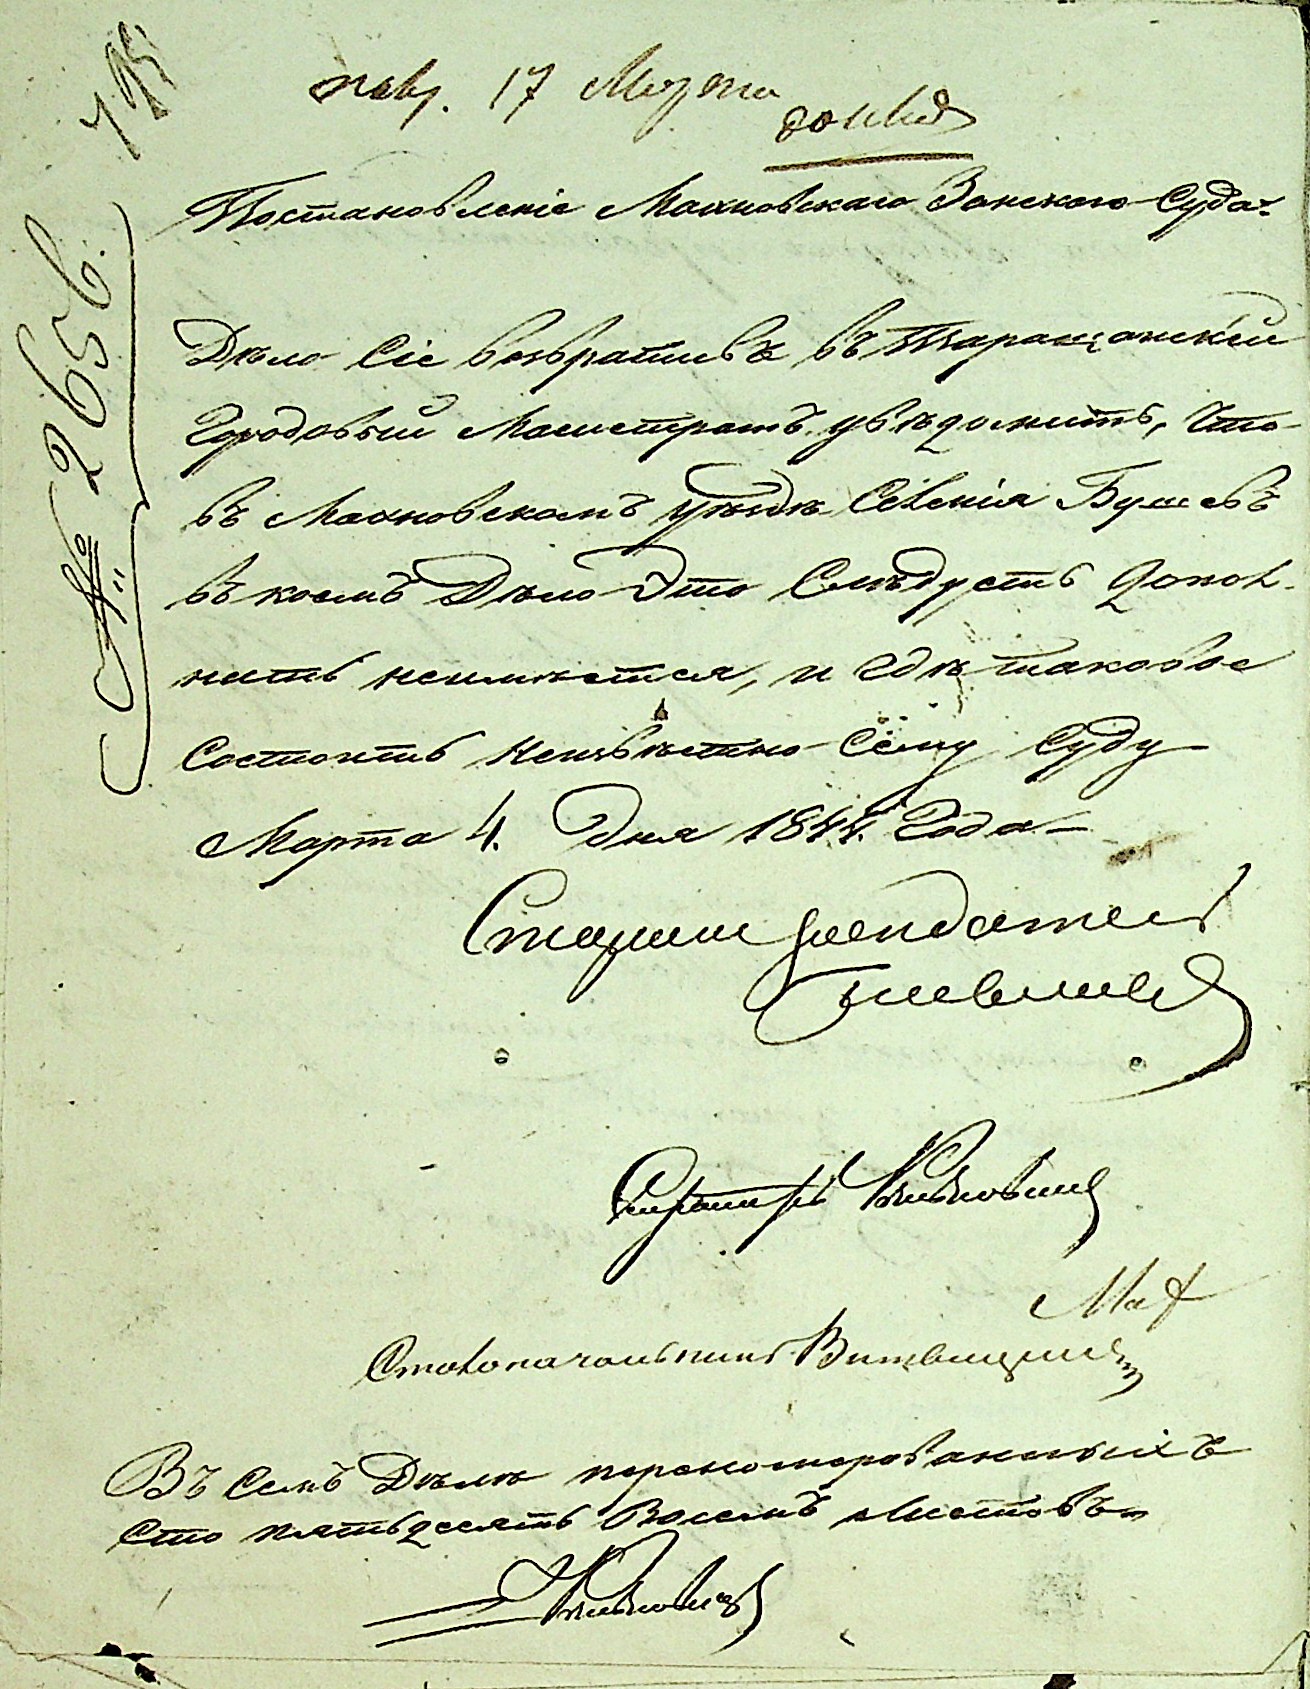 17 Марта
Постановленіе Махновскаго Земскаго Суда.
Дѣло Сіе возвративъ въ Таращанскій
Городовый Магистратъ увѣдомить, что
въ Махновскомъ уѣздѣ Селенія Бушевъ
въ коемъ Дѣло Это Слѣдуетъ допол-
нить неимѣется, и гдѣ таковое
Состоитъ неизвѣстно Сему Суду
Марта 4. дня 1844. Года
Старшій Засѣдатель
Секретарь
Столоначальникъ
Въ Семъ Дѣлѣ перенумерованныхъ
Сто пятьдесятъ Восемъ листовъ
№ 2656.